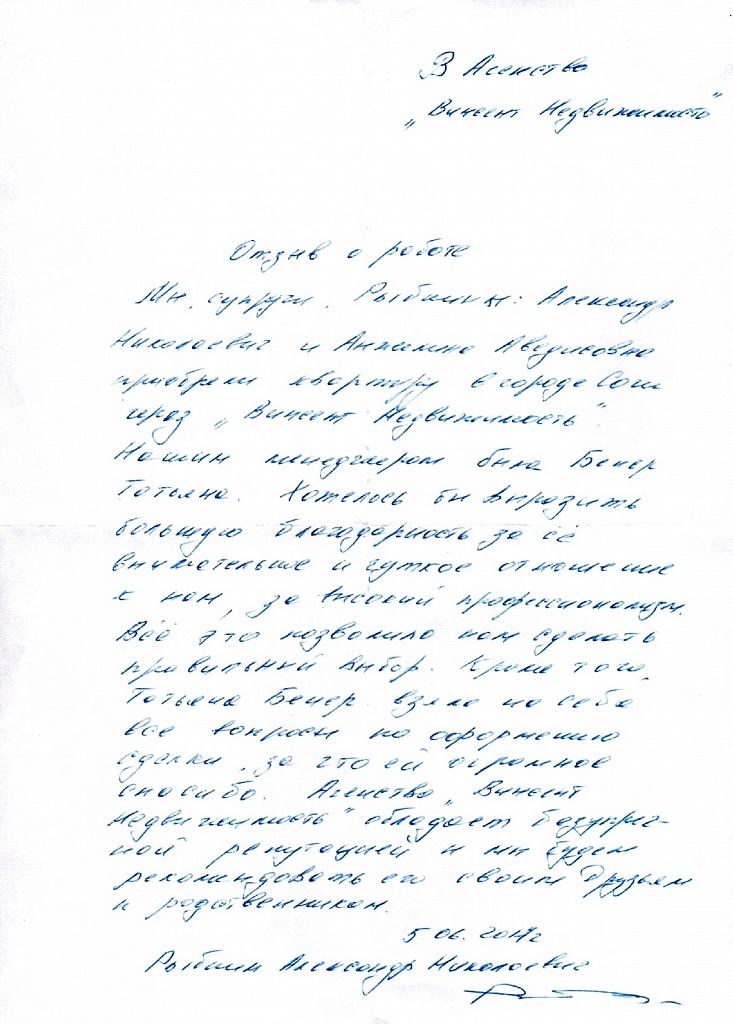 В Агенство
„Винсент Недвижимость"
Отзыв о работе
Мы, супруги, Рыбкины: Александр
Николаевич и Анжелика Аведисовна
приобрели квартиру в городе Сочи
через „Винсент Недвижимость".
Нашим менеджером была Бенер
Татьяна. Хотелось бы выразить
большую благодарность за её
внимательное и чуткое отношение
к нам, за высокий профессионализм.
Всё это позволило нам сделать
правильный выбор. Кроме того,
Татьяна Бенер взяла на себя
все вопросы по оформлению
сделки, за что ей огромное
спасибо. Агенство „Винсент
Недвижимость" обладает безупреч-
ной репутацией и мы будем
рекомендовать его своим друзьям
и родственникам.
5.06. г
Рыбкин Александр Николаевич